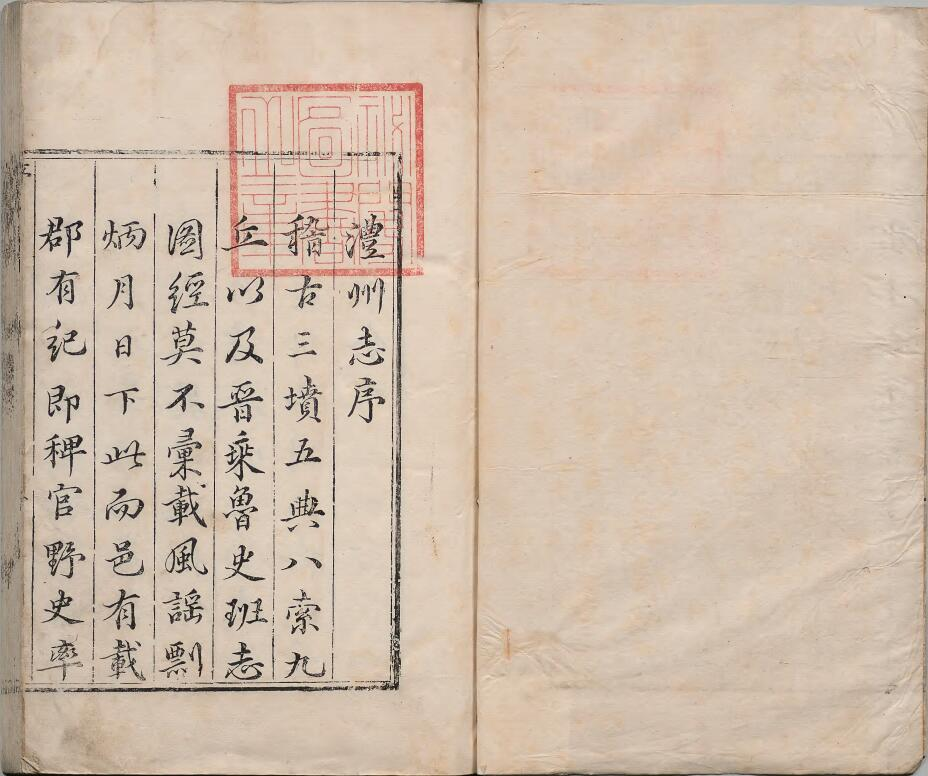 澧州志序
稽古三墳五典八索九
丘以及晉乘魯史班志
圖經莫不彙載風謠剽
炳月日下此而邑有載
郡有紀即稗官野史率